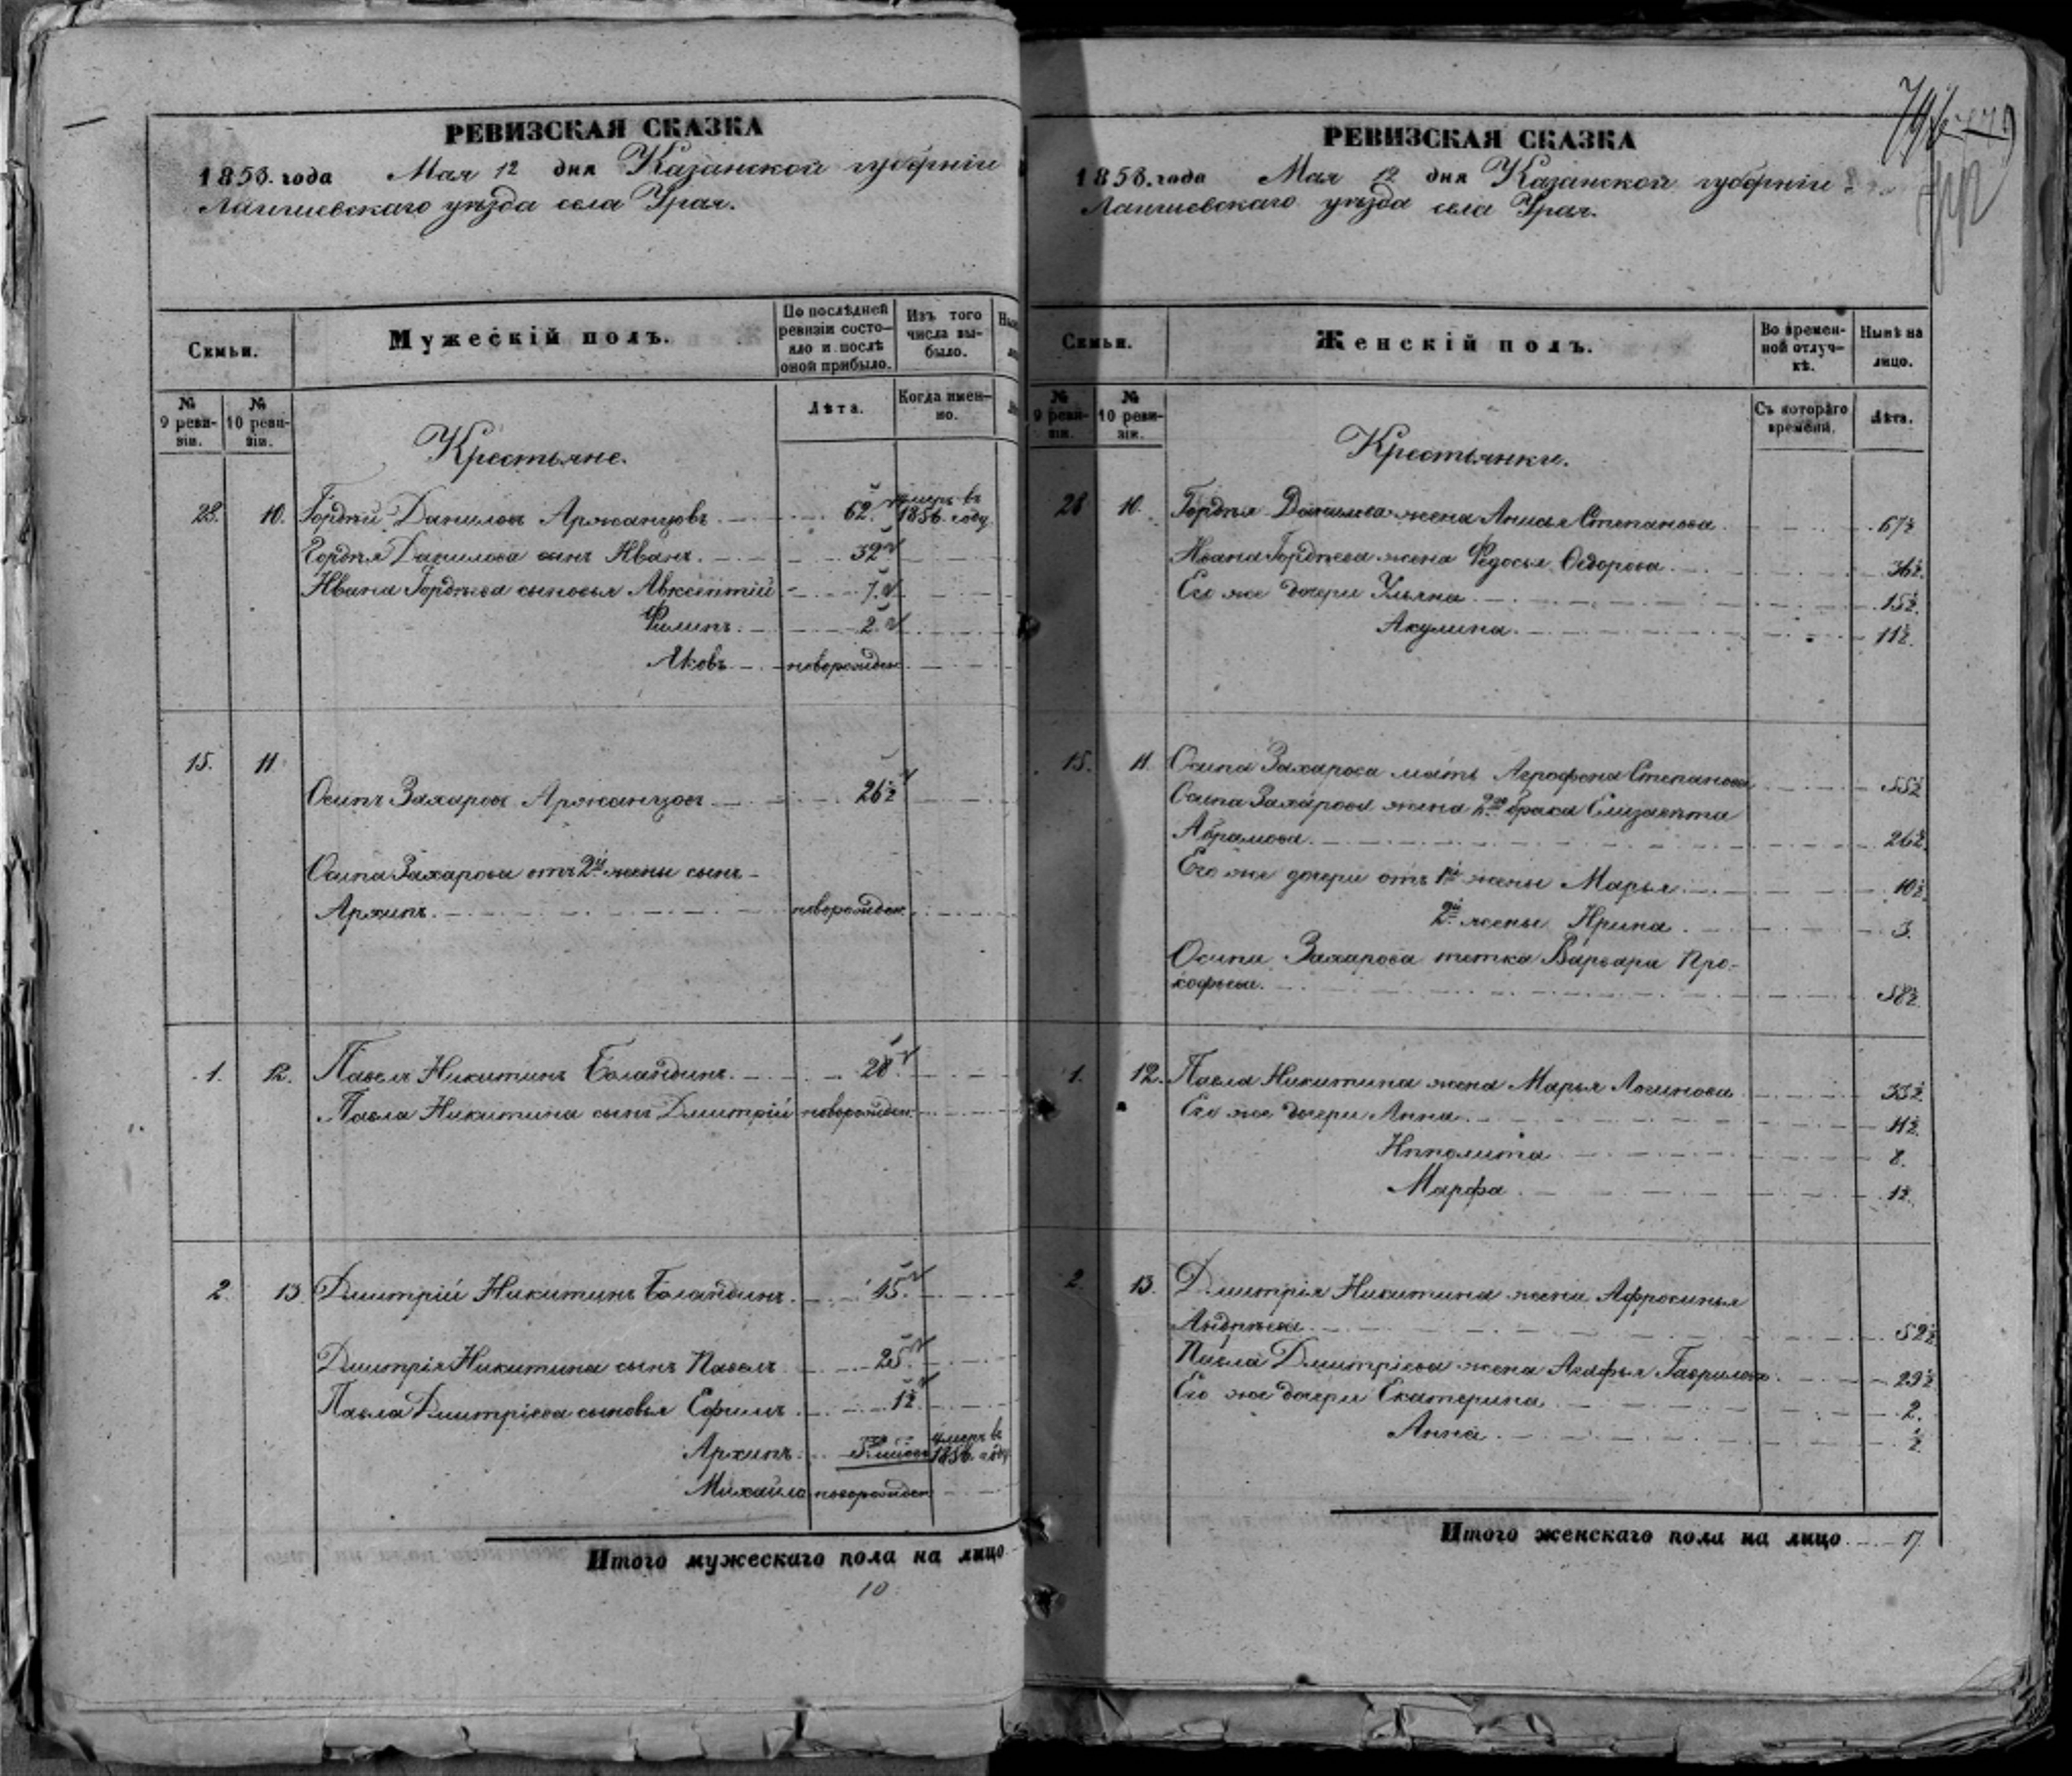 РЕВИЗСКАЯ СКАЗКА
1858. года Мая 12 дня Казанской губерніи
Лаишевскаго уѣзда села Урая.
Семьи.
Мужескій полъ.
По послѣдней ревизіи состояло и послѣ оной прибыло.
Изъ того числа выбыло.
№ 9 ревизіи.
№ 10 ревизіи.
Лѣта.
Когда именно.
Крестьяне.
28. 10. Гордѣй Даниловъ Аржанцовъ 62. умеръ въ 1856. году
Гордѣя Данилова сынъ Иванъ. 32
Ивана Гордѣева сыновья Авксентій 7.
Филипъ. 2.
Яковъ новорожден.
15. 11.
Осипъ Захаровъ Аржанцовъ 26½
Осипа Захарова отъ 2й жены сынъ
Архипъ. новорожден.
1. 12. Павелъ Никитинъ Баландинъ. 28.
Павла Никитина сынъ Дмитрій новорожден.
2. 13. Дмитрій Никитинъ Баландинъ. 45.
Дмитрія Никитина сынъ Павелъ 25.
Павла Дмитріева сыновья Ефимъ ½
Архипъ. умеръ въ 1856. году
Михайла новорожден
Итого мужескаго пола на лицо
10.
РЕВИЗСКАЯ СКАЗКА
1858. года Мая 12 дня Казанской губерніи
Лаишевскаго уѣзда села Урая.
Семьи.
Женскій полъ.
Во временной отлучкѣ.
Нынѣ на лицо.
№ 9 ревизіи.
№ 10 ревизіи.
Съ котораго времени.
Лѣта.
Крестьянки.
28 10. Гордѣя Данилова жена Анисья Степанова 67½
Ивана Гордѣева жена Ѳедосья Сидорова 36½.
Его же дочери Ульяна 15½.
Акулина. 11½.
15. 11. Осипа Захарова мать Агрофена Степанова 55½
Осипа Захарова жена 2го брака Елизавета
Абрамова. 26½.
Его же дочери отъ 1й жены Марья 10½.
2й жены Ирина 3.
Осипа Захарова тетка Варвара Про-
кофьева. 58½.
1. 12. Павла Никитина жена Марья Логинова 33½
Его же дочери Анна. 11½.
Ипполита 8.
Марфа 1½.
2. 13. Дмитрія Никитина жена Афросинья
Андрѣева 52½
Павла Дмитріева жена Агафья Гаврилова 29½
Его же дочери Екатерина 2.
Анна ½
Итого женскаго пола на лицо 17.